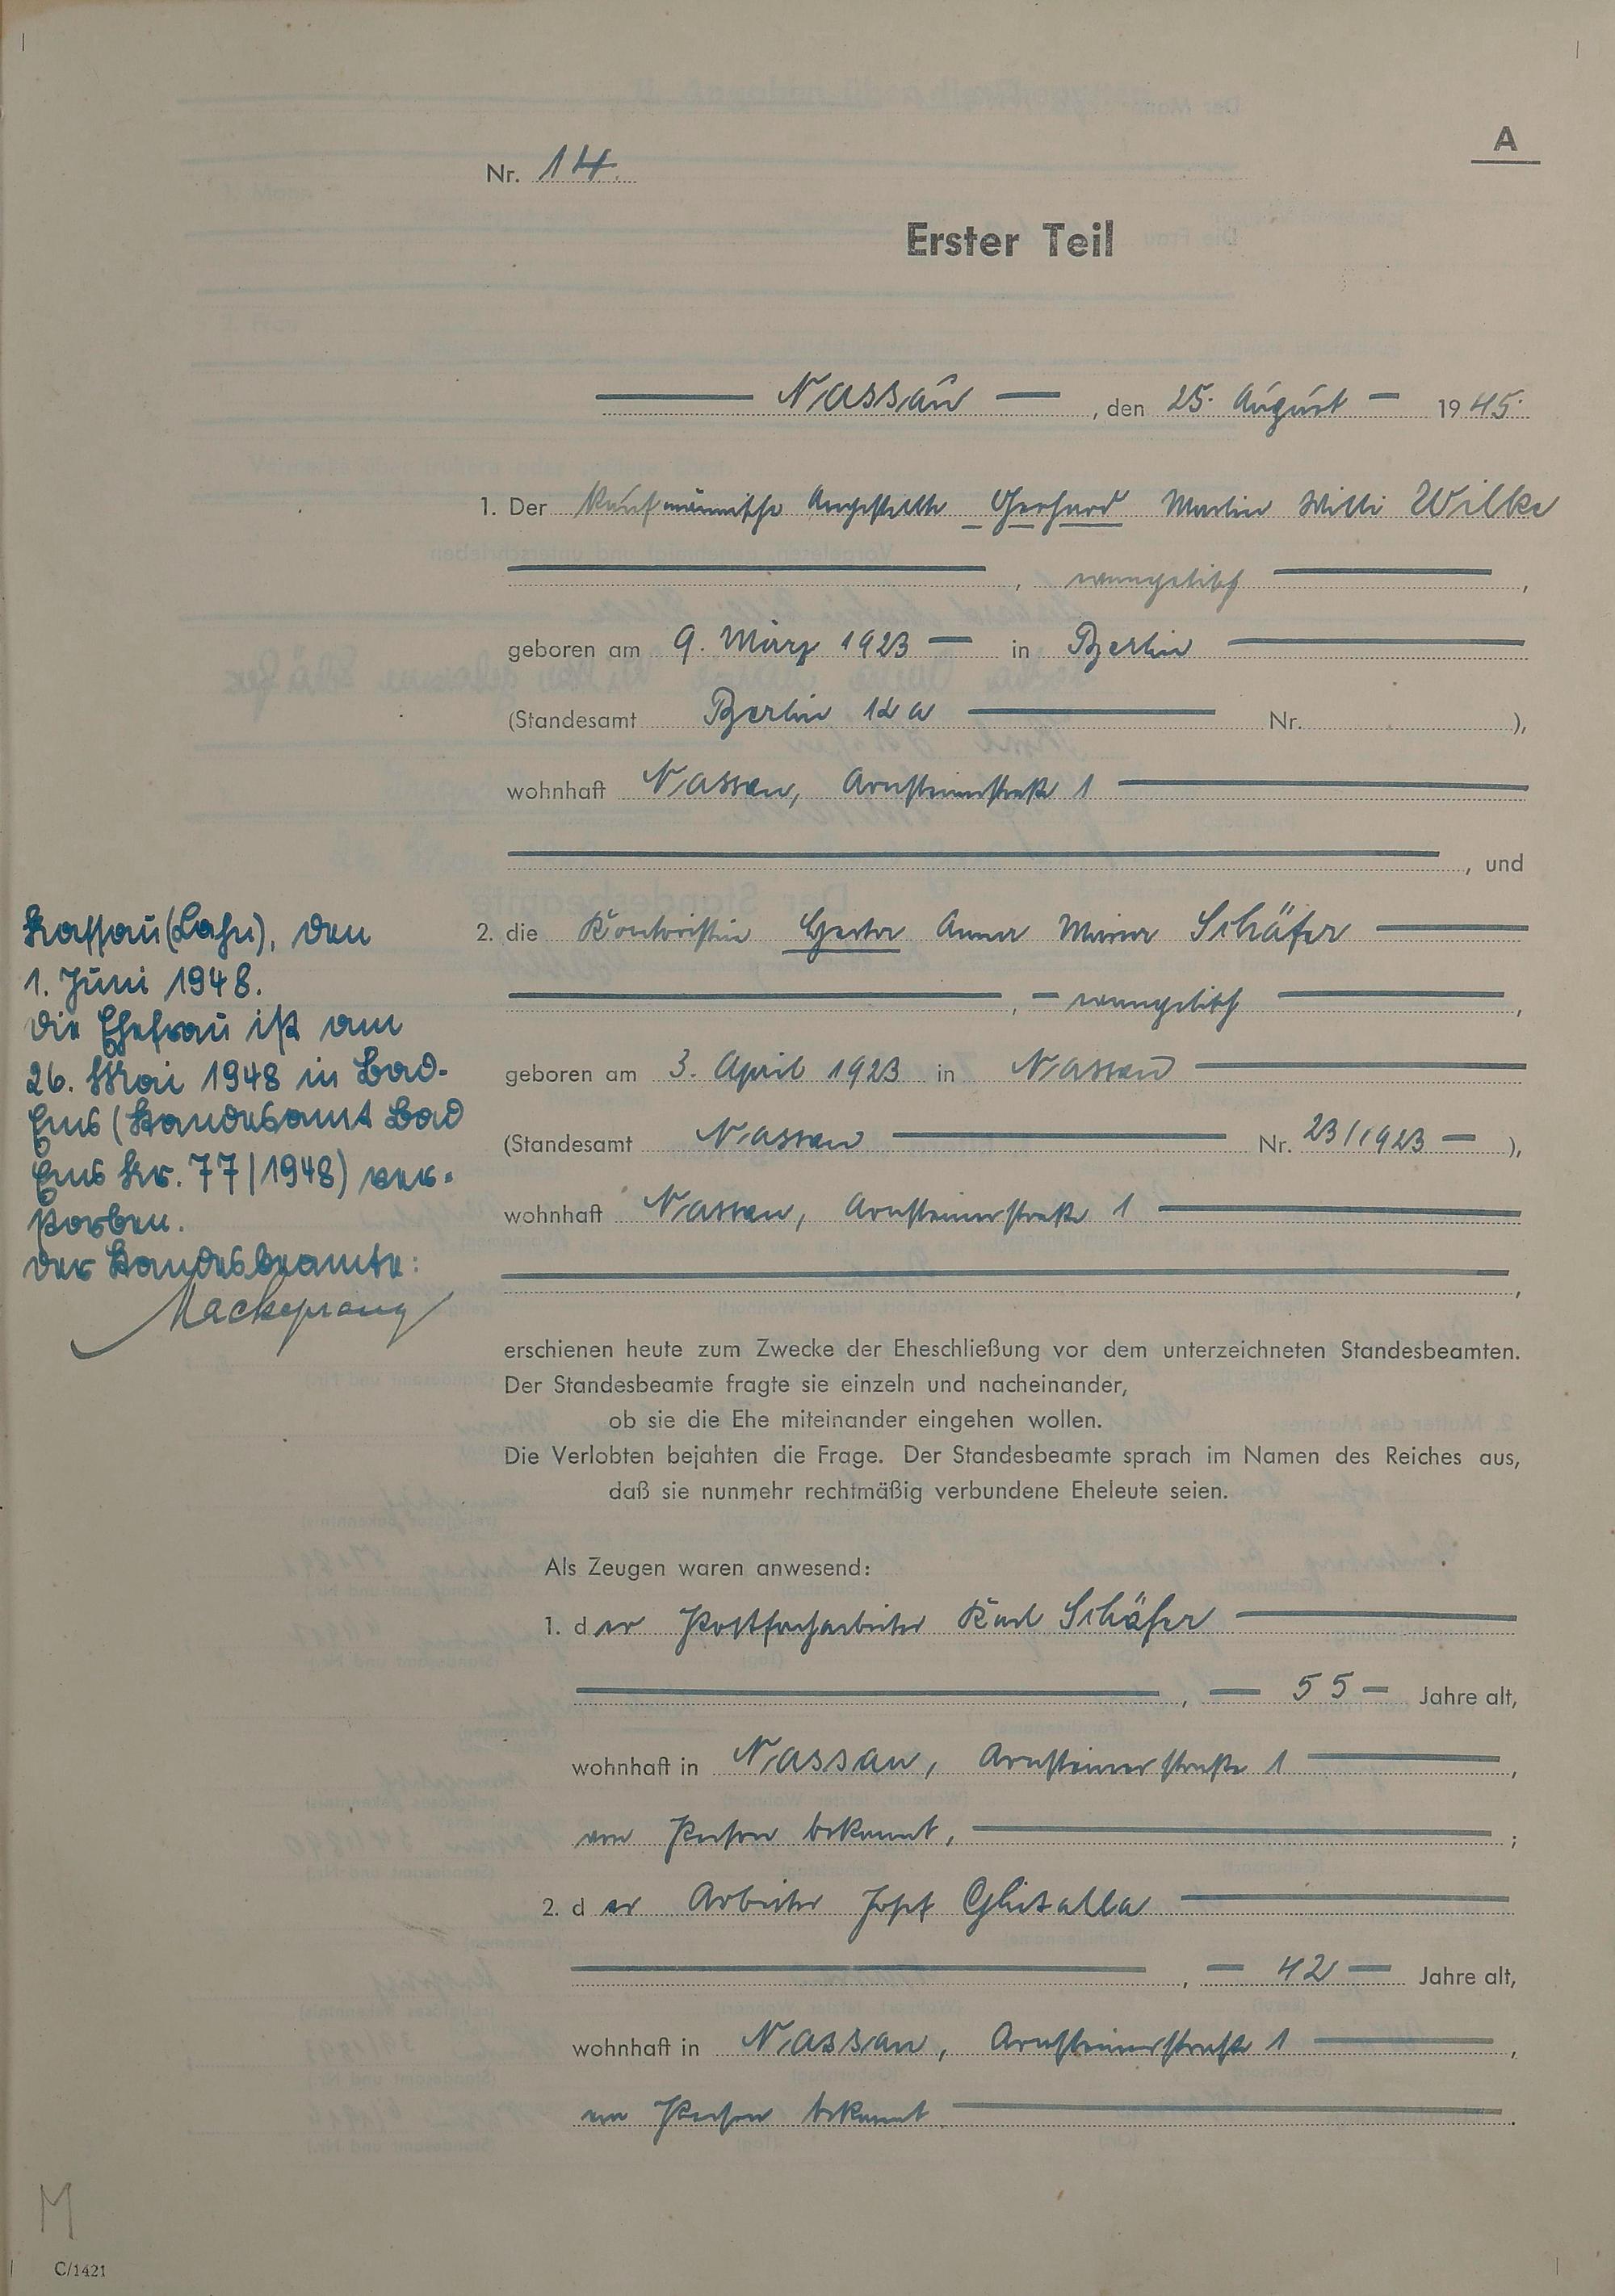 A
Nr. 14.
Erster Teil
Nassau, den 25. August 1945.
1. Der kaufmännische Angestellte Gerhard Martin Willi Wilke
, evangelisch ,
geboren am 9. März 1923 in Berlin
(Standesamt Berlin 12 a Nr. ),
wohnhaft Nassau, Arnsteinerstraße 1
, und
2. die Kontoristin Herta Anna Maria Schäfer
, evangelisch ,
geboren am 3. April 1923 in Nassau
(Standesamt Nassau Nr. 23/1923 ),
wohnhaft Nassau, Arnsteinerstraße 1
,
Nassau (Lahn), den
1. Juni 1948.
Die Ehefrau ist am
26. Mai 1948 in Bad-
Ems (Standesamt Bad
Ems Nr. 77/1948) ver-
storben.
Der Standesbeamte:
Mackeprang
erschienen heute zum Zwecke der Eheschließung vor dem unterzeichneten Standesbeamten.
Der Standesbeamte fragte sie einzeln und nacheinander,
ob sie die Ehe miteinander eingehen wollen.
Die Verlobten bejahten die Frage. Der Standesbeamte sprach im Namen des Reiches aus,
daß sie nunmehr rechtmäßig verbundene Eheleute seien.
Als Zeugen waren anwesend:
1. der Postfacharbeiter Karl Schäfer
, 55 Jahre alt,
wohnhaft in Nassau, Arnsteinerstraße 1 ,
von Person bekannt, ;
2. der Arbeiter Josef
, 42 Jahre alt,
wohnhaft in Nassau, Arnsteinerstraße 1 ,
von Person bekannt .
M
C/1421